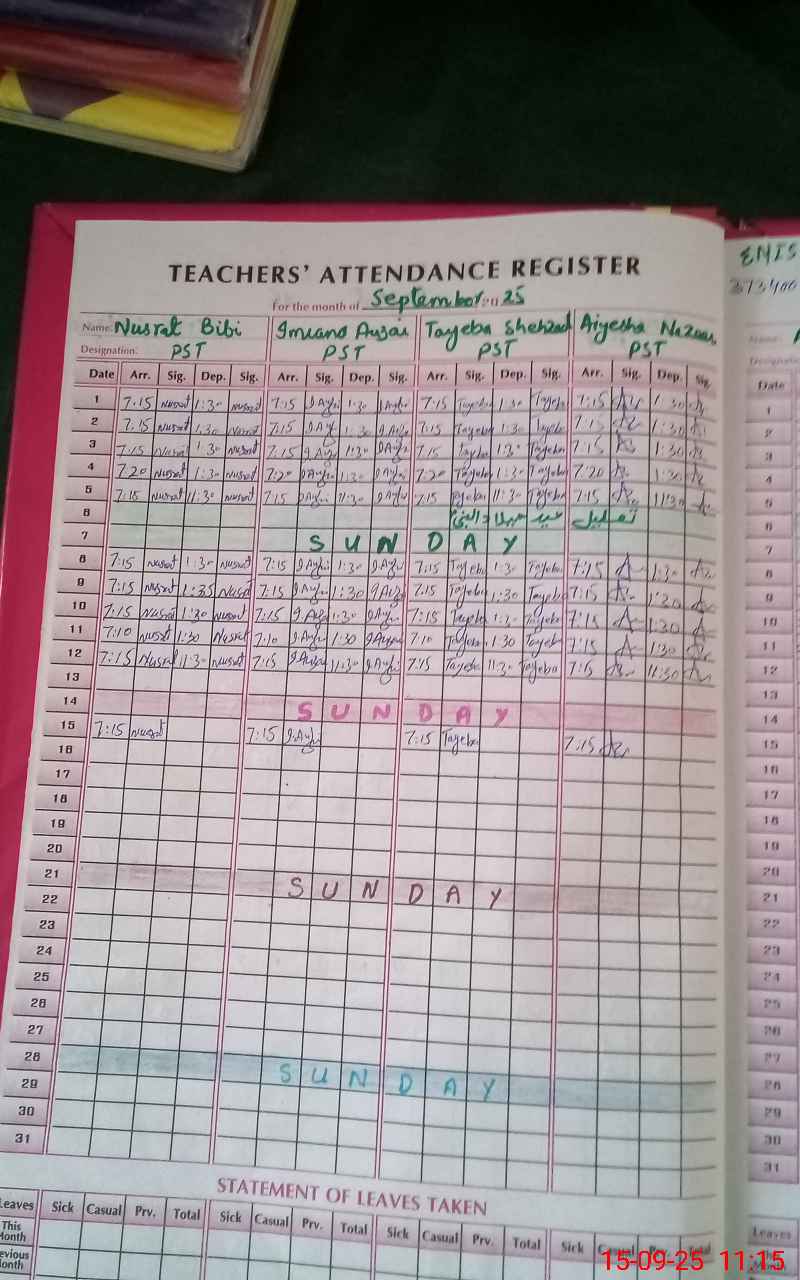 ENIS
TEACHERS' ATTENDANCE REGISTER
For the month of September 2025
Name: Nusrat Bibi Tayeba Shehzad Aiyesha
Designation: PST PST PST PST
Date Arr. Sig. Dep. Sig. Arr. Sig. Dep. Sig. Arr. Sig. Dep. Sig. Arr. Sig. Dep. Sig. Date
1 7:15 Nusrat 1:30 Nusrat 7:15 1:30 7:15 Tayeba 1:30 Tayeba 7:15 1:30 1
2 7:15 Nusrat 1:30 Nusrat 7:15 1:30 7:15 Tayeba 1:30 Tayeba 7:15 1:30 2
3 7:15 Nusrat 1:30 Nusrat 7:15 1:30 7:15 Tayeba 1:30 Tayeba 7:15 1:30 3
4 7:20 Nusrat 1:30 Nusrat 7:20 1:30 7:20 Tayeba 1:30 Tayeba 7:20 1:30 4
5 7:15 Nusrat 11:30 Nusrat 7:15 11:30 7:15 Tayeba 11:30 Tayeba 7:15 11:30 5
6 تعطیل عید میلاد النبی 6
7 SUNDAY 7
8 7:15 Nusrat 1:30 Nusrat 7:15 1:30 7:15 Tayeba 1:30 Tayeba 7:15 1:30 8
9 7:15 Nusrat 1:35 Nusrat 7:15 1:30 7:15 Tayeba 1:30 Tayeba 7:15 1:30 9
10 7:15 Nusrat 1:30 Nusrat 7:15 1:30 7:15 Tayeba 1:30 Tayeba 7:15 1:30 10
11 7:10 Nusrat 1:30 Nusrat 7:10 1:30 7:10 Tayeba 1:30 Tayeba 7:15 1:30 11
12 7:15 Nusrat 11:30 Nusrat 7:15 11:30 7:15 Tayeba 11:30 Tayeba 7:15 11:30 12
13 13
14 SUNDAY 14
15 7:15 Nusrat 7:15 7:15 Tayeba 7:15 15
16 16
17 17
18 18
19 19
20 20
21 SUNDAY 21
22 22
23 23
24 24
25 25
26 26
27 27
28 SUNDAY 28
29 29
30 30
31 31
STATEMENT OF LEAVES TAKEN
Leaves Sick Casual Prv. Total Sick Casual Prv. Total Sick Casual Prv. Total Sick Casual Prv. Total Leaves
This Month
Previous Month
15-09-25 11:15